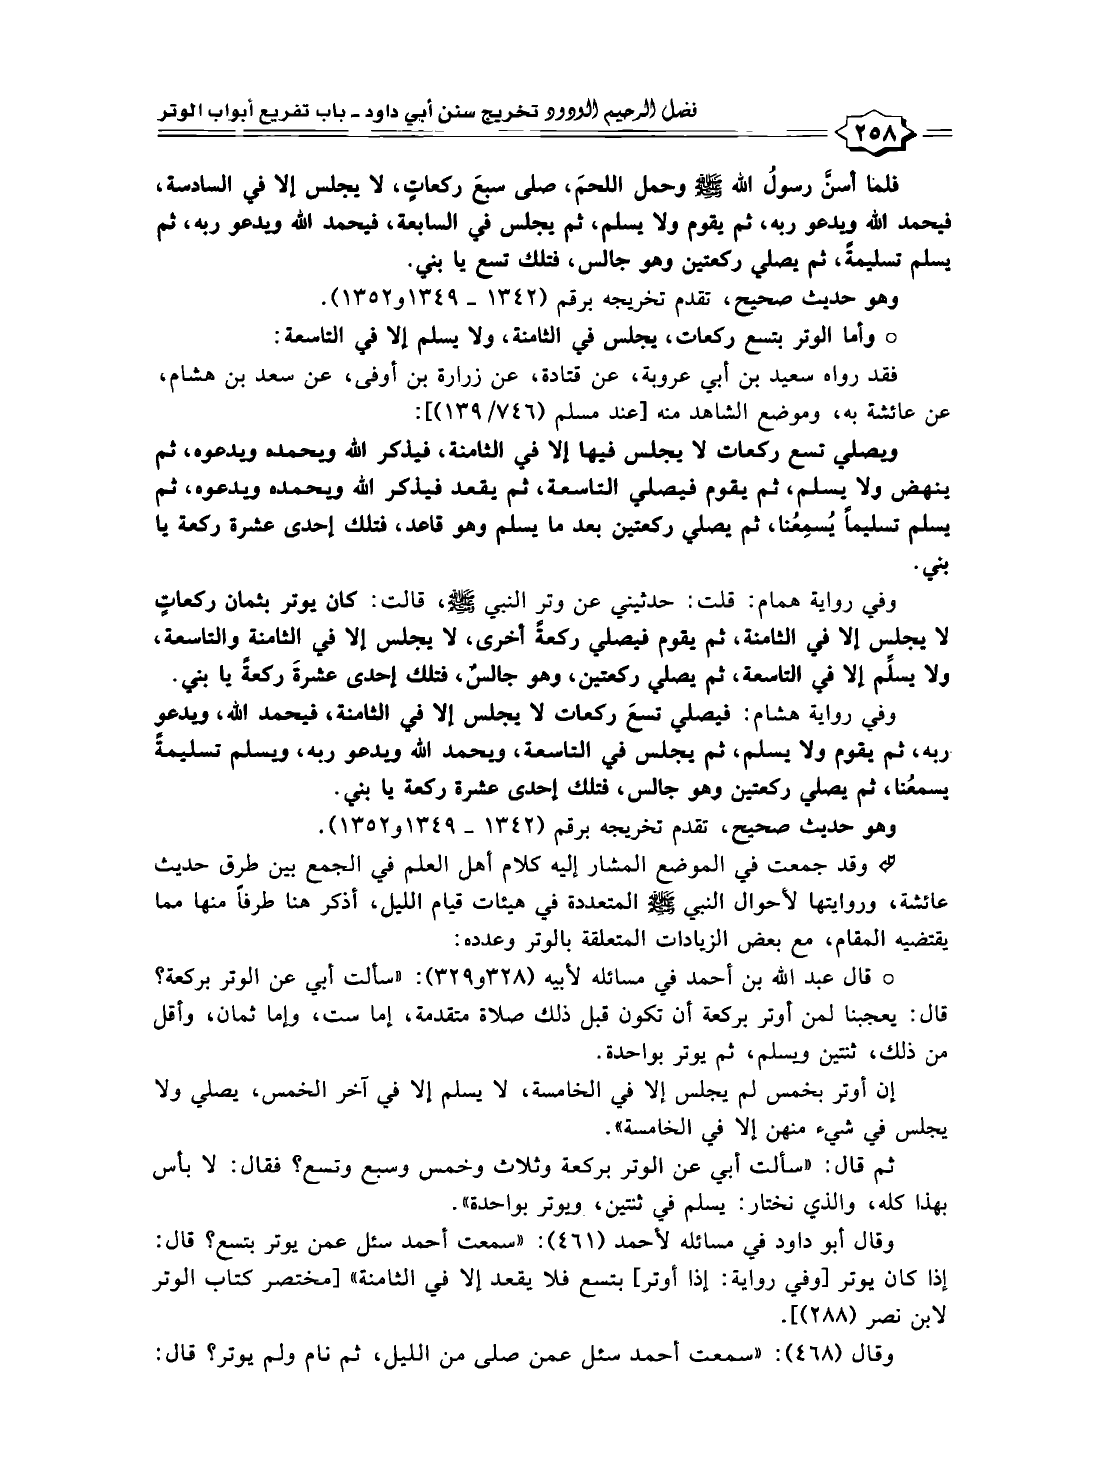 فضل الرحيم الودود تخريج سنن أبي داود ـ باب تفريع أبواب الوتر
٢٥٨
فلما أسنَّ رسولُ الله ﷺ وحمل اللحمَ، صلى سبعَ ركعاتٍ، لا يجلس إلا في السادسة،
فيحمد الله ويدعو ربه، ثم يقوم ولا يسلم، ثم يجلس في السابعة، فيحمد الله ويدعو ربه، ثم
يسلم تسليمةً، ثم يصلي ركعتين وهو جالس، فتلك تسع يا بني.
وهو حديث صحيح، تقدم تخريجه برقم (١٣٤٢ ـ ١٣٤٩و١٣٥٢).
○ وأما الوتر بتسع ركعات، يجلس في الثامنة، ولا يسلم إلا في التاسعة:
فقد رواه سعيد بن أبي عروبة، عن قتادة، عن زرارة بن أوفى، عن سعد بن هشام،
عن عائشة به، وموضع الشاهد منه [عند مسلم (١٣٩/٧٤٦)]:
ويصلي تسع ركعات لا يجلس فيها إلا في الثامنة، فيذكر الله ويحمده ويدعوه، ثم
ينهض ولا يسلم، ثم يقوم فيصلي التاسعة، ثم يقعد فيذكر الله ويحمده ويدعوه، ثم
يسلم تسليماً يُسمِعُنا، ثم يصلي ركعتين بعد ما يسلم وهو قاعد، فتلك إحدى عشرة ركعة يا
بني.
وفي رواية همام: قلت: حدثيني عن وتر النبي ﷺ، قالت: كان يوتر بثمان ركعاتٍ
لا يجلس إلا في الثامنة، ثم يقوم فيصلي ركعةً أخرى، لا يجلس إلا في الثامنة والتاسعة،
ولا يسلِّم إلا في التاسعة، ثم يصلي ركعتين، وهو جالسٌ، فتلك إحدى عشرةَ ركعةً يا بني.
وفي رواية هشام: فيصلي تسعَ ركعات لا يجلس إلا في الثامنة، فيحمد الله، ويدعو
ربه، ثم يقوم ولا يسلم، ثم يجلس في التاسعة، ويحمد الله ويدعو ربه، ويسلم تسليمةً
يسمعُنا، ثم يصلي ركعتين وهو جالس، فتلك إحدى عشرة ركعة يا بني.
وهو حديث صحيح، تقدم تخريجه برقم (١٣٤٢ ـ ١٣٤٩و١٣٥٢).
وقد جمعت في الموضع المشار إليه كلام أهل العلم في الجمع بين طرق حديث
عائشة، وروايتها لأحوال النبي ﷺ المتعددة في هيئات قيام الليل، أذكر هنا طرفاً منها مما
يقتضيه المقام، مع بعض الزيادات المتعلقة بالوتر وعدده:
○ قال عبد الله بن أحمد في مسائله لأبيه (٣٢٨و٣٢٩): «سألت أبي عن الوتر بركعة؟
قال: يعجبنا لمن أوتر بركعة أن تكون قبل ذلك صلاة متقدمة، إما ست، وإما ثمان، وأقل
من ذلك، ثنتين ويسلم، ثم يوتر بواحدة.
إن أوتر بخمس لم يجلس إلا في الخامسة، لا يسلم إلا في آخر الخمس، يصلي ولا
يجلس في شيء منهن إلا في الخامسة».
ثم قال: «سألت أبي عن الوتر بركعة وثلاث وخمس وسبع وتسع؟ فقال: لا بأس
بهذا كله، والذي نختار: يسلم في ثنتين، ويوتر بواحدة».
وقال أبو داود في مسائله لأحمد (٤٦١): «سمعت أحمد سئل عمن يوتر بتسع؟ قال:
إذا كان يوتر [وفي رواية: إذا أوتر] بتسع فلا يقعد إلا في الثامنة» [مختصر كتاب الوتر
لابن نصر (٢٨٨)].
وقال (٤٦٨): «سمعت أحمد سئل عمن صلى من الليل، ثم نام ولم يوتر؟ قال: